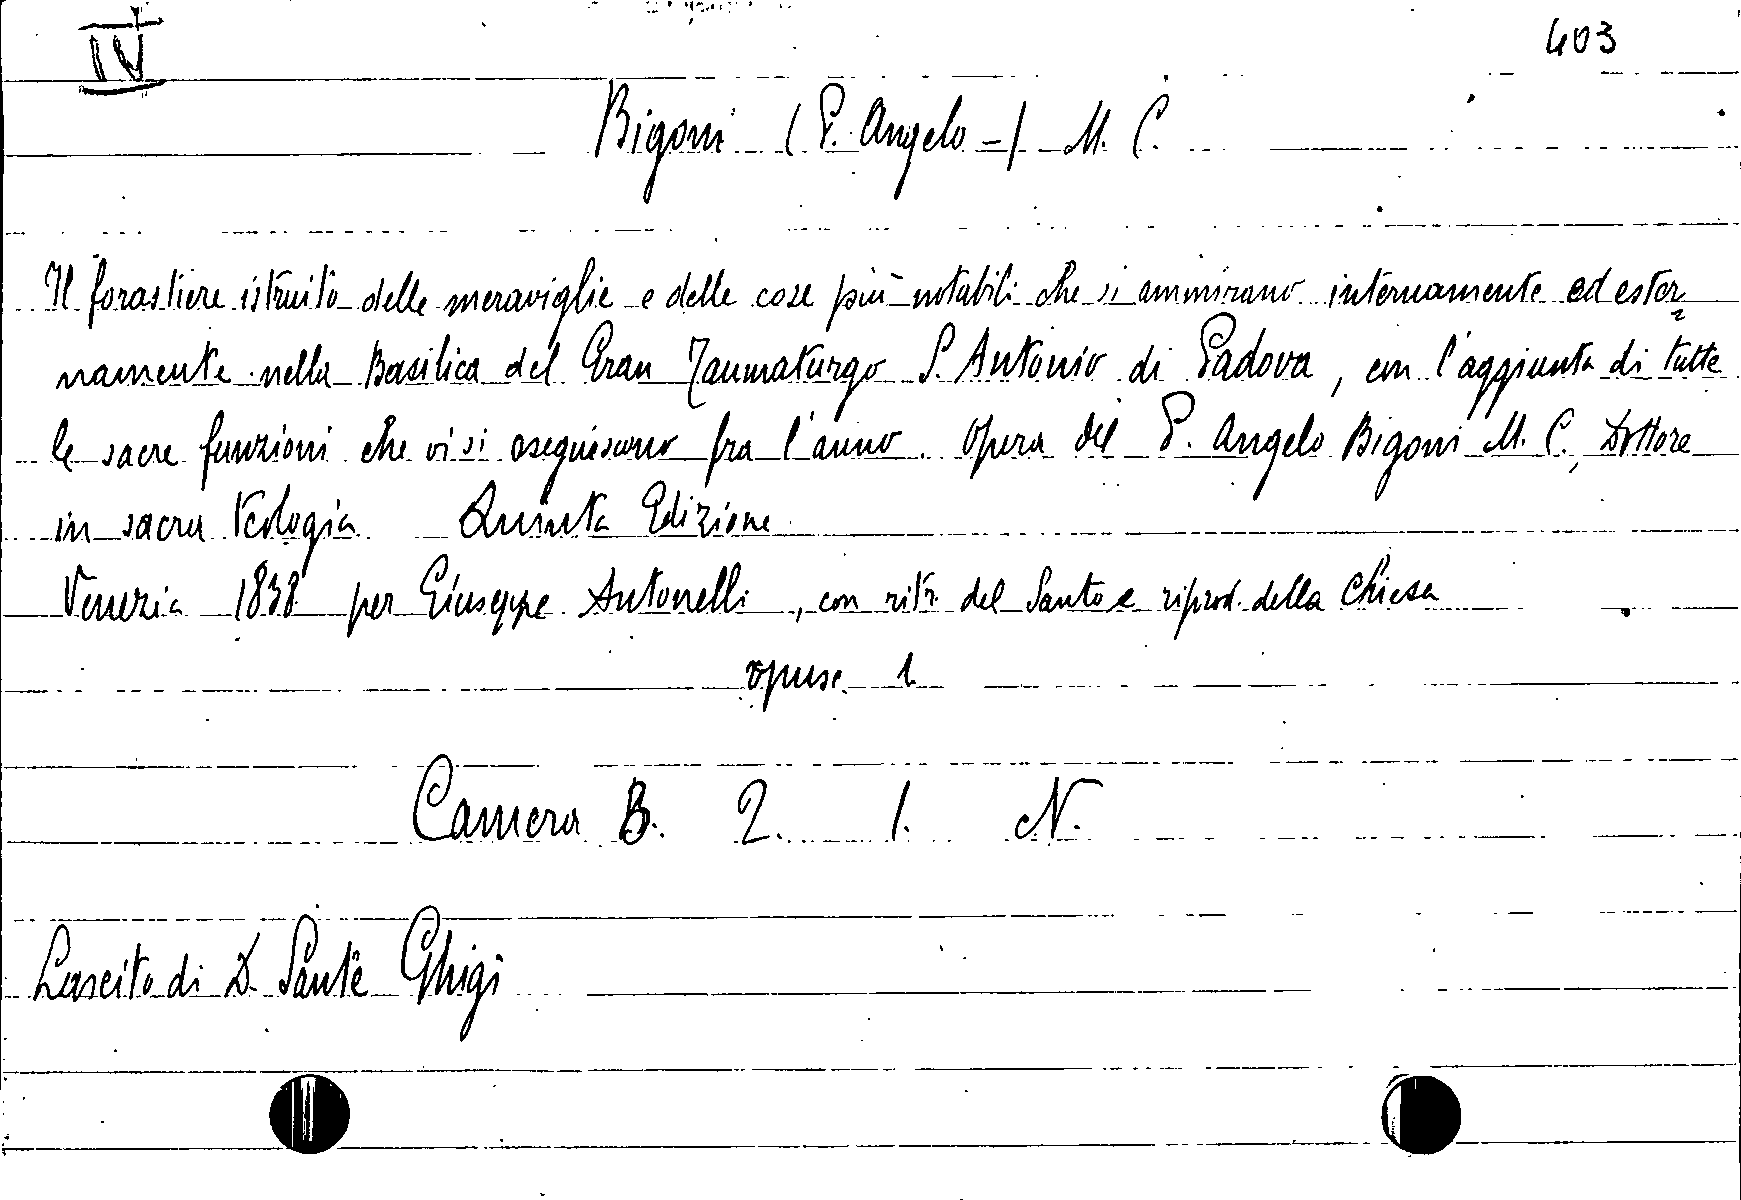 IV
403
Bigoni (P. Angelo -) M. C.
Il forastiere istruito delle meraviglie e delle cose più notabili che si ammirano internamente ed ester
namente nella Basilica del Gran Taumaturgo S. Antonio di Padova, con l'aggiunta di tutte
le sacre funzioni che vi si eseguiscono fra l'anno. Opera del P. Angelo Bigoni M. C., Dottore
in sacra teologia Quinta Edizione
Venezia 1838 per Giuseppe Antonelli, con ritr. del Santo e riprod. della Chiesa
opusc. 1
Camera B. 2. 1. N.
Lascito di D. Sante Ghigi